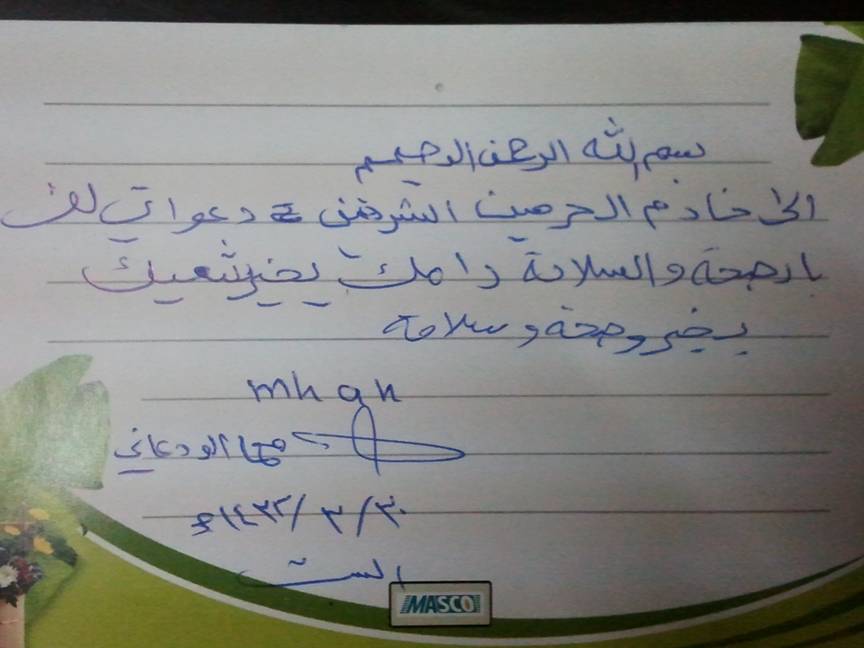 بسم الله الرحمن الرحيم
الى خادم الحرمين الشرفين = دعواتي لك
بارصحة والسلامة دامك بخير شعبك
بخير وصحة وسلامة
mhgh
محمد الودعاني
١٤٣٢/٣/٣٠هـ
السبت
MASCO